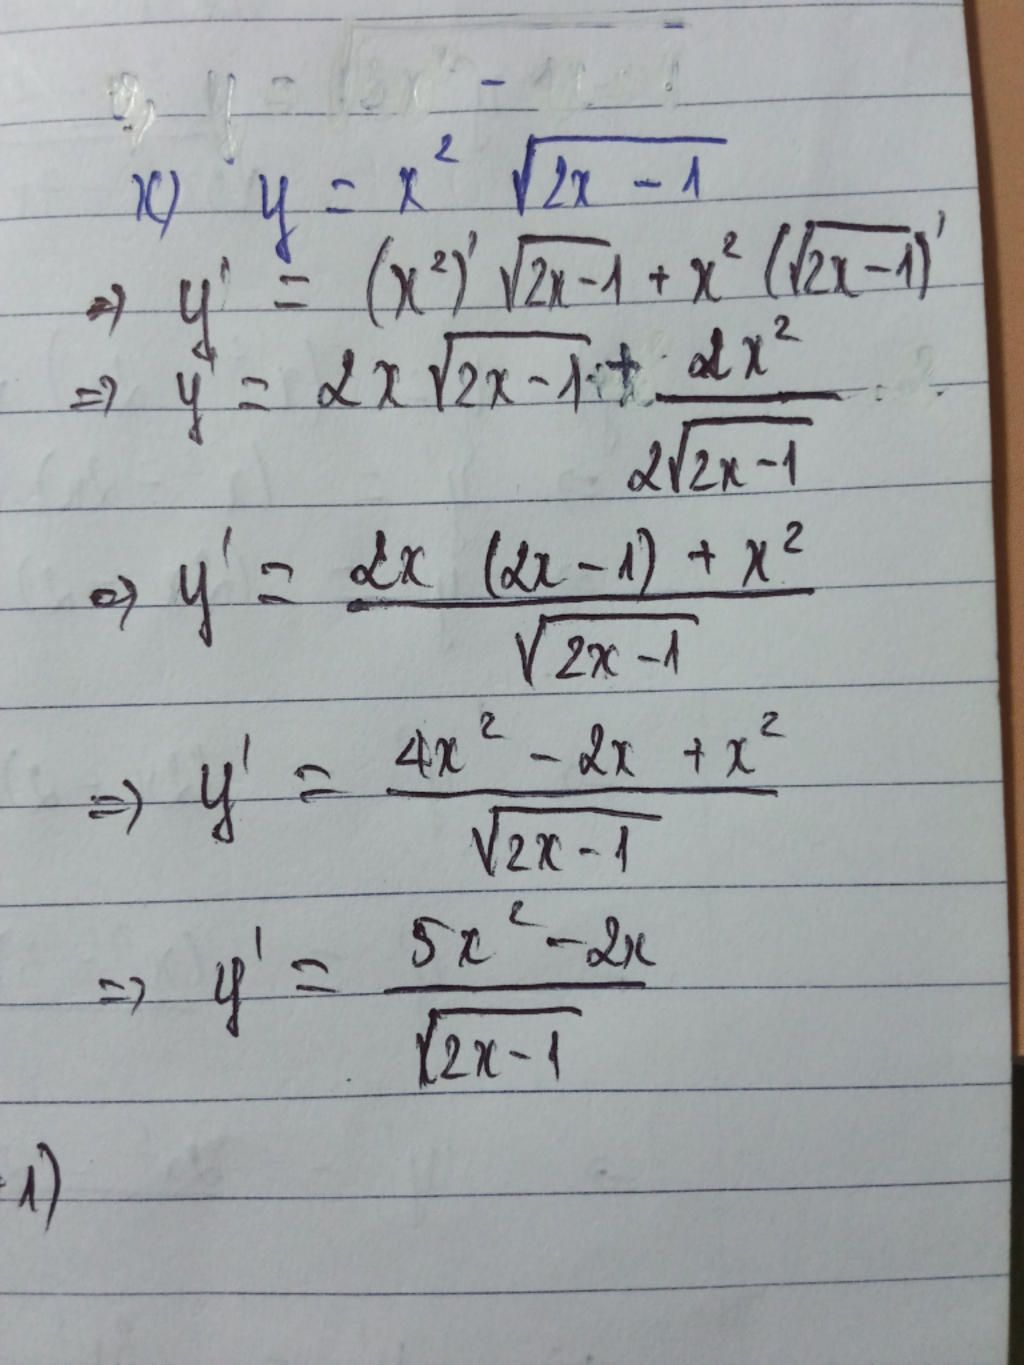 x) y = x² √(2x - 1)
=> y' = (x²)' √(2x-1) + x² (√(2x-1))'
=> y' = 2x √(2x-1) + 2x² / 2√(2x-1)
=> y' = 2x (2x-1) + x² / √(2x-1)
=> y' = 4x² - 2x + x² / √(2x-1)
=> y' = 5x² - 2x / √(2x-1)
1)